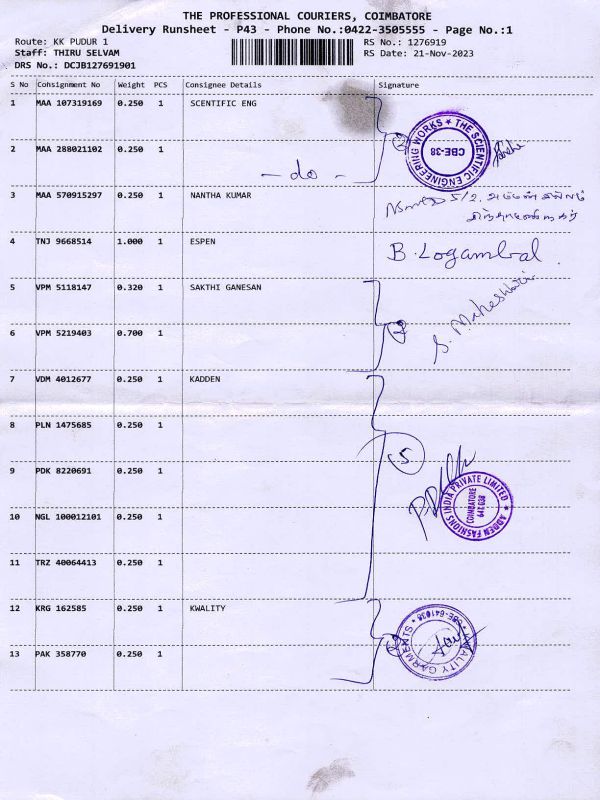 THE PROFESSIONAL COURIERS, COIMBATORE
Delivery Runsheet - P43 - Phone No.:0422-3505555 - Page No.:1
Route: KK PUDUR 1
Staff: THIRU SELVAM
DRS No.: DCJB127691901
RS No.: 1276919
RS Date: 21-Nov-2023
S No Consignment No Weight PCS Consignee Details Signature
1 MAA 107319169 0.250 1 SCENTIFIC ENG
2 MAA 288021102 0.250 1
- do -
2
THE SCIENTIFIC ENGINEERING WORKS ★
CBE-38
3 MAA 570915297 0.250 1 NANTHA KUMAR
5/2,
4 TNJ 9668514 1.000 1 ESPEN
B. Logambal
5 VPM 5118147 0.320 1 SAKTHI GANESAN
6 VPM 5219403 0.700 1
2
S. Maheshwari
7 VDM 4012677 0.250 1 KADDEN
8 PLN 1475685 0.250 1
9 PDK 8220691 0.250 1
10 NGL 100012101 0.250 1
11 TRZ 40064413 0.250 1
5
ADDEN FASHIONS INDIA PRIVATE LIMITED ★
COIMBATORE
641 038
12 KRG 162585 0.250 1 KWALITY
13 PAK 358770 0.250 1
KWALITY GARMENTS ★ CBE-641038 ★